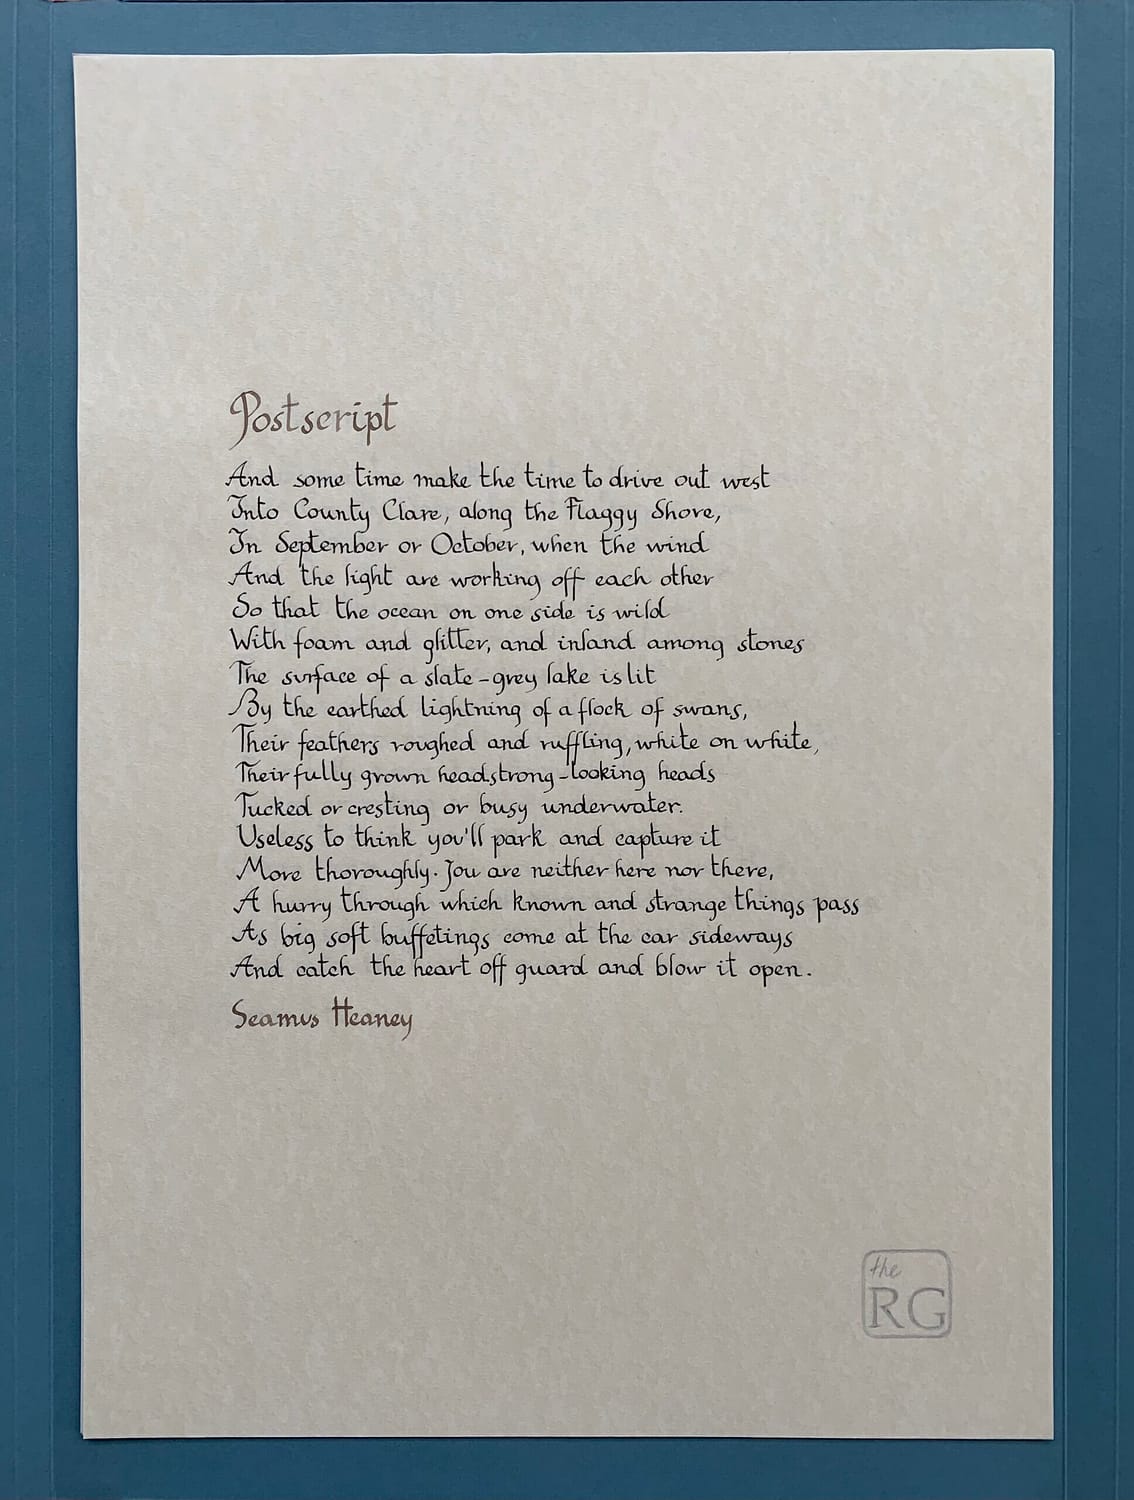 Postscript
And some time make the time to drive out west
Into County Clare, along the Flaggy Shore,
In September or October, when the wind
And the light are working off each other
So that the ocean on one side is wild
With foam and glitter, and inland among stones
The surface of a slate-grey lake is lit
By the earthed lightning of a flock of swans,
Their feathers roughed and ruffling, white on white,
Their fully grown headstrong-looking heads
Tucked or cresting or busy underwater.
Useless to think you'll park and capture it
More thoroughly. You are neither here nor there,
A hurry through which known and strange things pass
As big soft buffetings come at the car sideways
And catch the heart off guard and blow it open.
Seamus Heaney
the
RG